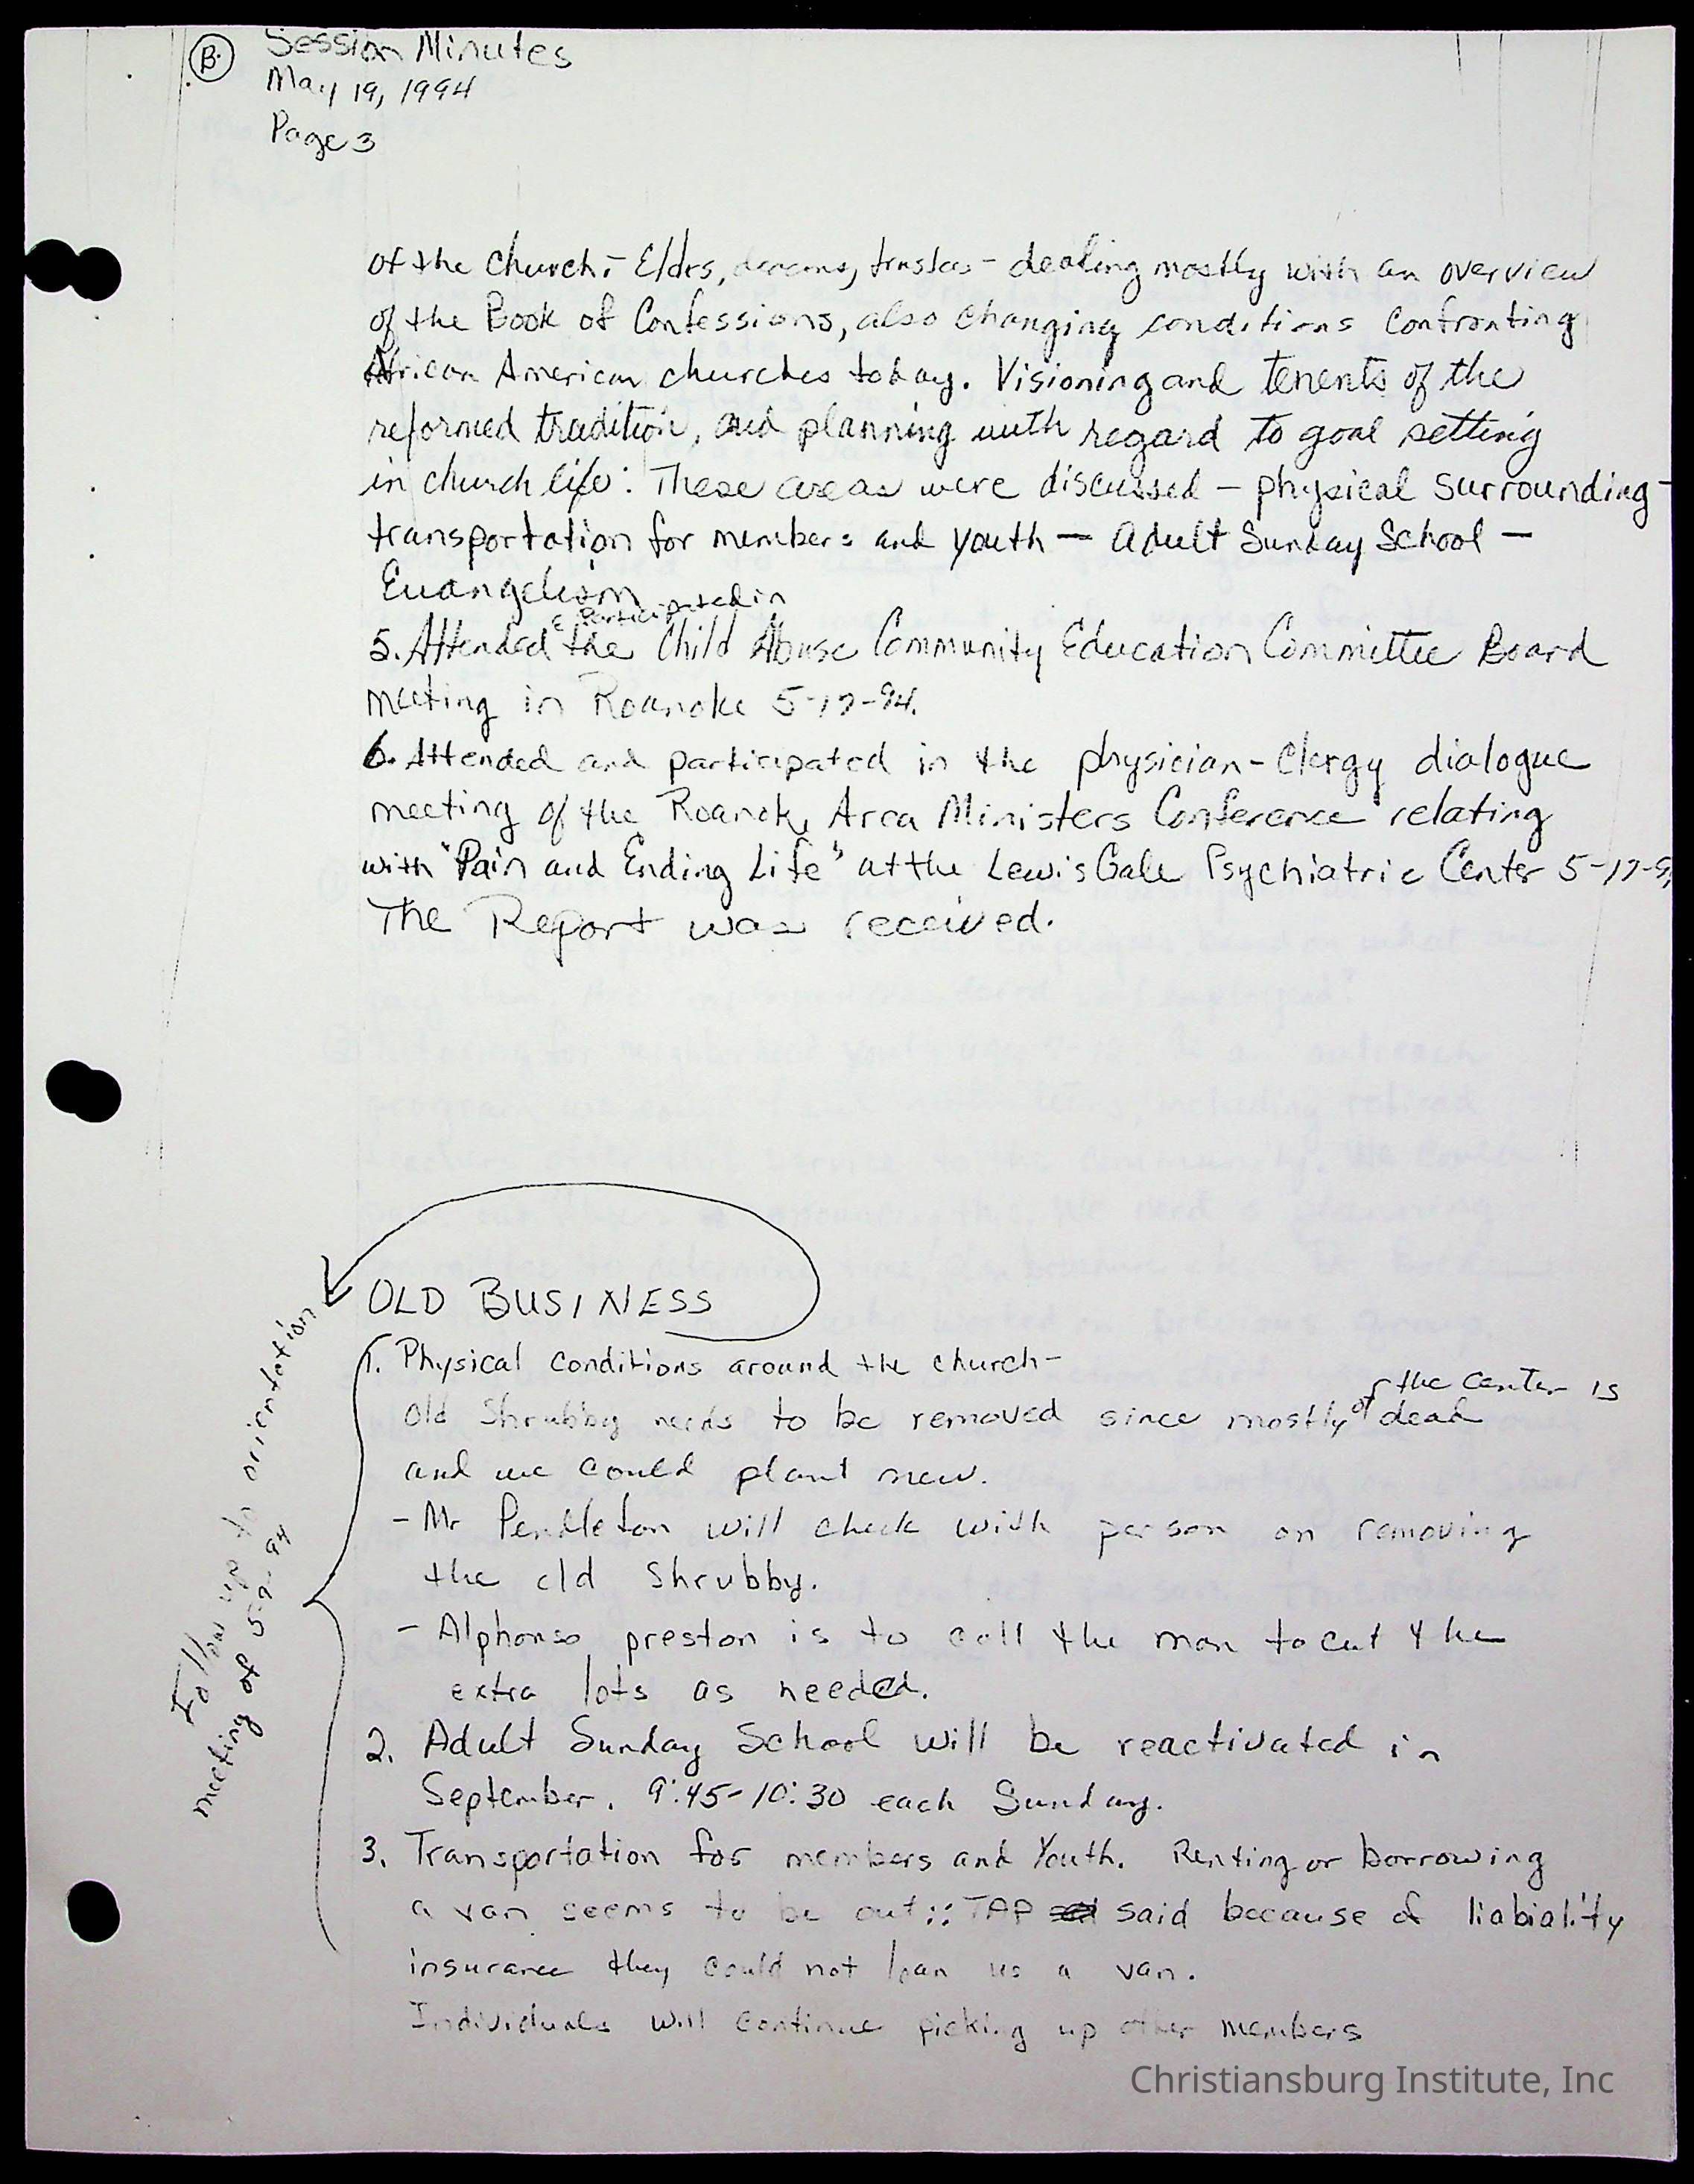 B.
Session Minutes
May 19, 1994
Page 3
of the church - Eldrs, deacons, trustees - dealing mostly with an overview
of the Book of Confessions, also changing conditions confronting
African American churches today. Visioning and tenents of the
reformed tradition, and planning with regard to goal setting
in church life: These areas were discussed - physical surrounding -
transportation for members and youth — Adult Sunday School —
Evangelism
& Participated in
5. Attended the Child Abuse Community Education Committee Board
meeting in Roanoke 5-17-94.
6. Attended and participated in the physician-Clergy dialogue
meeting of the Roanoke Area Ministers Conference relating
with "Pain and Ending Life" at the Lewis Gale Psychiatric Center 5-17-9
The Report was received.
OLD BUSINESS
1. Physical conditions around the church-
of the center is
Old Shrubby needs to be removed since mostly dead
and we could plant new.
- Mr Pendleton will check with person on removing
the old shrubby.
- Alphonso preston is to call the man to cut the
extra lots as needed.
2. Adult Sunday School will be reactivated in
September. 9:45-10:30 each Sunday.
3. Transportation for members and Youth. Renting or borrowing
a van seems to be out:: TAP said because of liabiality
insurance they could not loan us a van.
Individuals will continue picking up other members
Follow up to orientation
meeting of 5-9-94
Christiansburg Institute, Inc